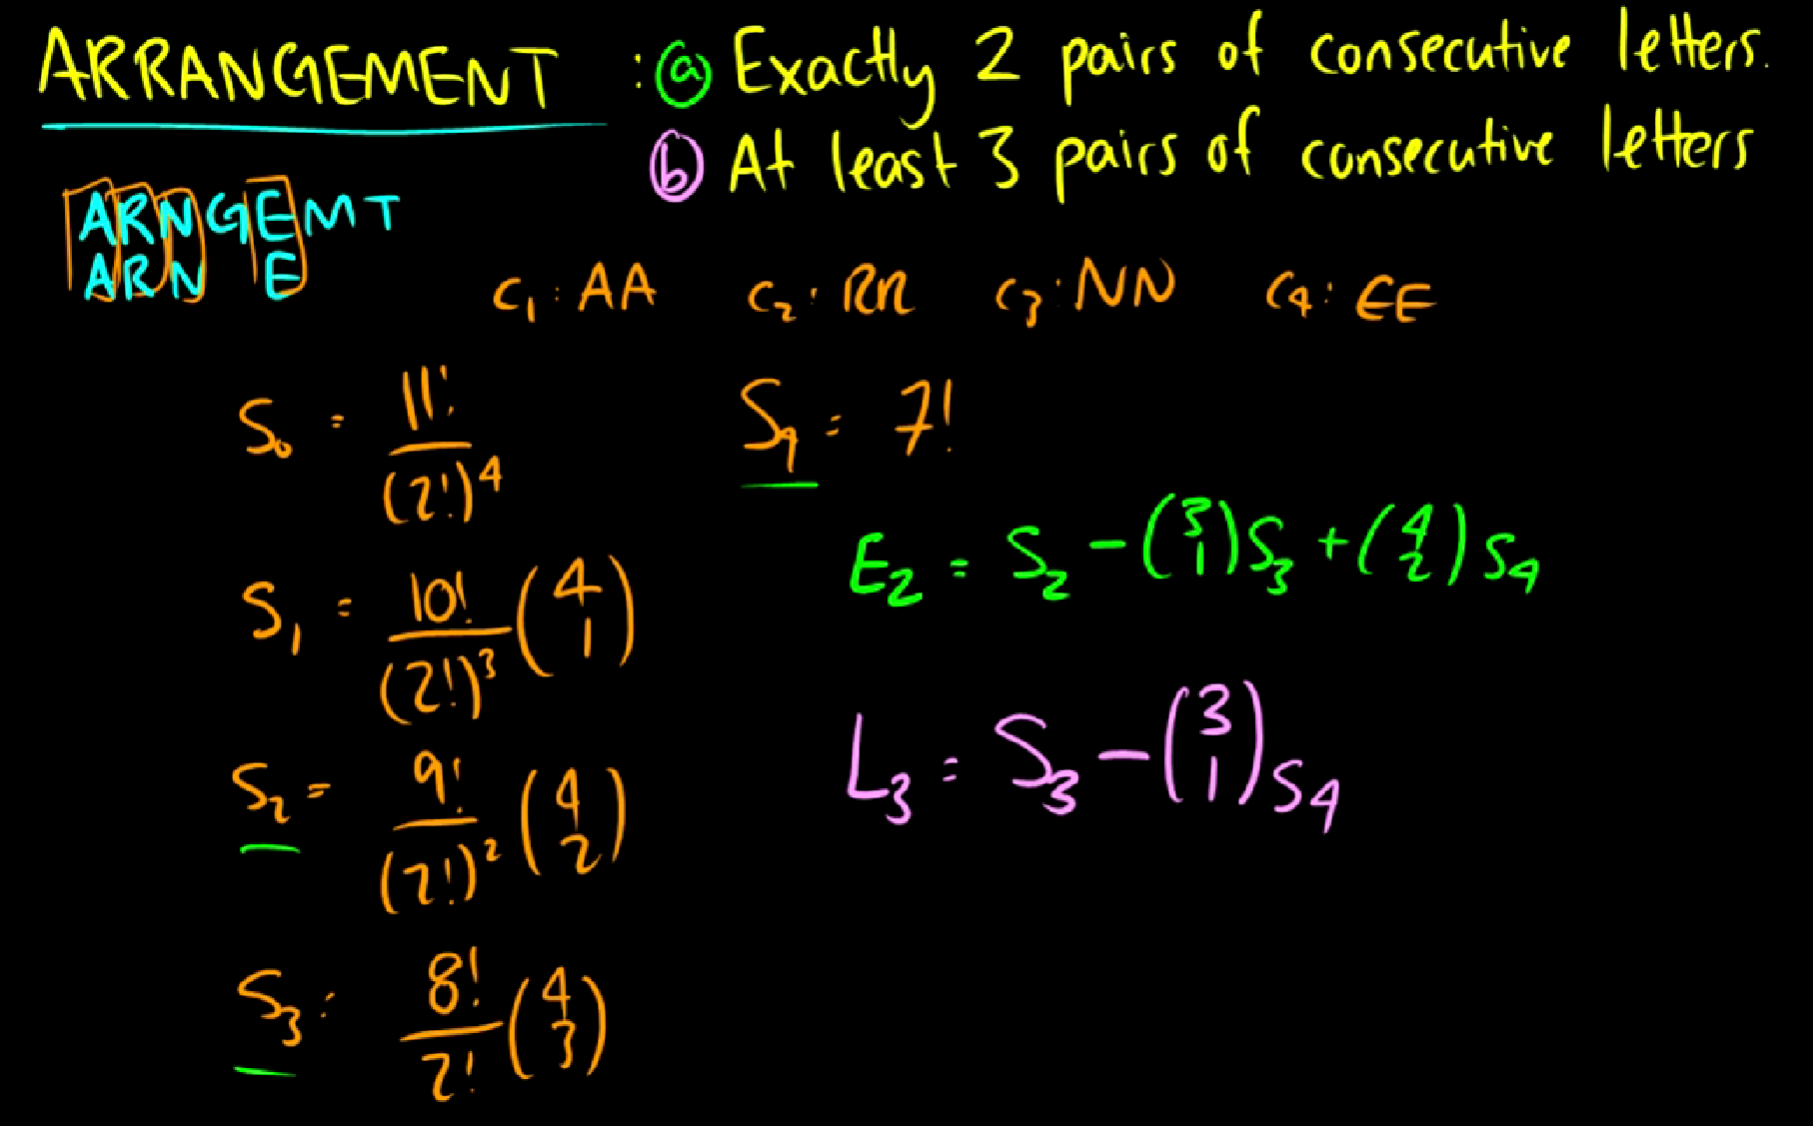 ARRANGEMENT : (a) Exactly 2 pairs of consecutive letters.
(b) At least 3 pairs of consecutive letters
ARNGEMT
ARN E
C₁: AA C₂: RR C₃: NN C₄: EE
S₀ = 11!/(2!)⁴
S₄ = 7!
S₁ = 10!/(2!)³ (4 1)
E₂ = S₂ - (3 1)S₃ + (4 2)S₄
S₂ = 9!/(2!)² (4 2)
L₃ = S₃ - (3 1)S₄
S₃: 8!/2! (4 3)